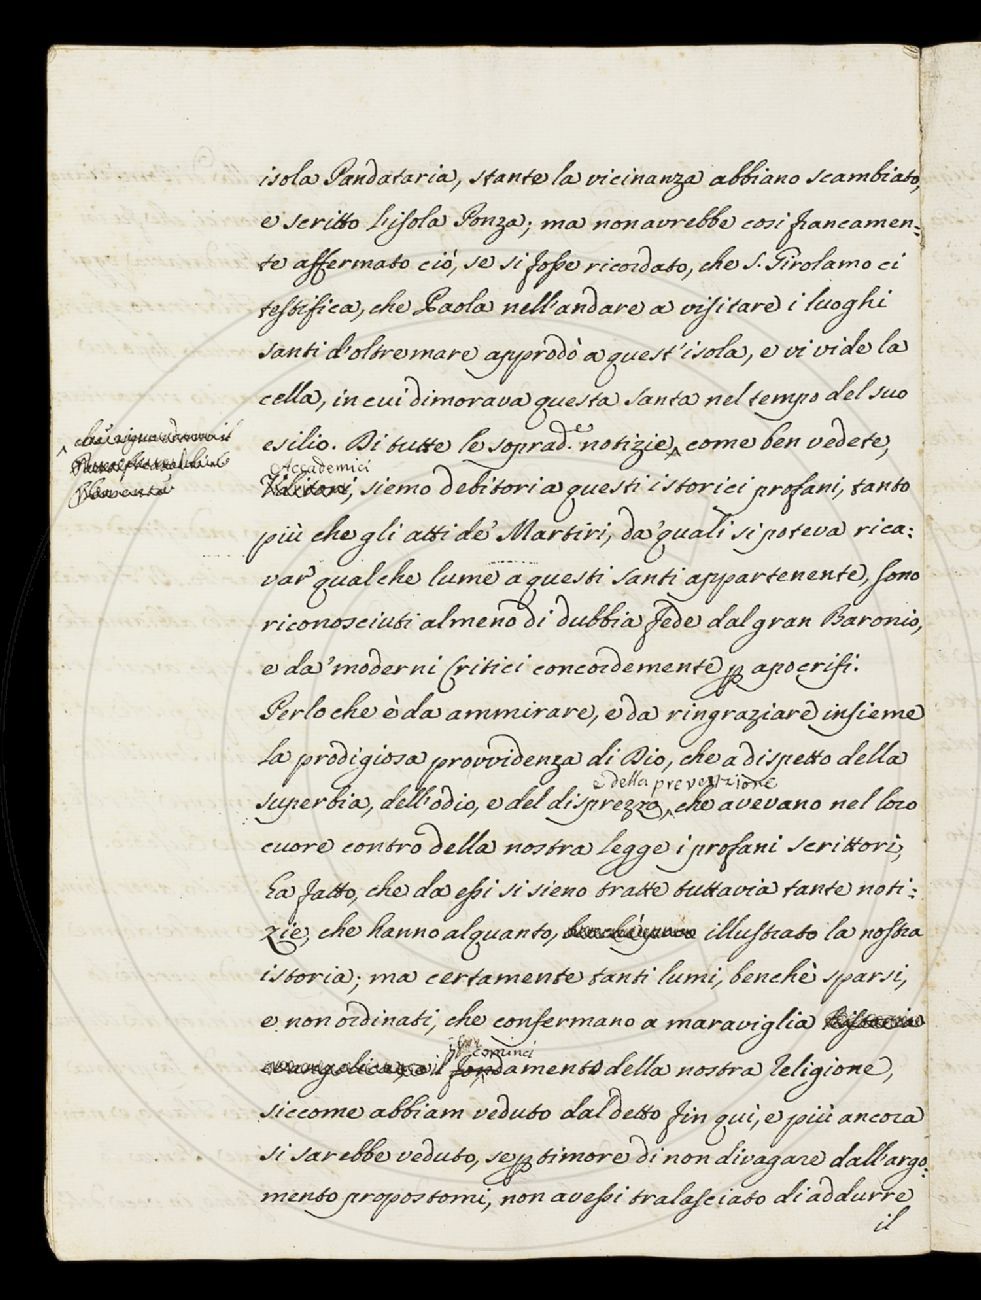 isola Pandataria, stante la vicinanza abbiano scambiato,
e scritto l'isola Ponza; ma non avrebbe così francamen-
te affermato ciò, se si fosse ricordato, che S. Girolamo ci
testifica, che Paola nell'andare a visitare i luoghi
santi d'oltremare approdò a quest'isola, e vi vide la
cella, in cui dimorava questa santa nel tempo del suo
esilio. Di tutte le soprad.e notizie, come ben vedete,
Accademici
Uditori, siemo debitori a questi istorici profani, tanto
più che gli atti de' Martiri, da' quali si poteva rica-
var qualche lume a questi santi appartenente, sono
riconosciuti almeno di dubbia fede dal gran Baronio,
e da' moderni Critici concordemente p apocrifi.
Perloche è da ammirare, e da ringraziare insieme
la prodigiosa provvidenza di Dio, che a dispetto della
e della prevenzione
superbia, dell'odio, e del disprezzo, che avevano nel loro
cuore contro della nostra legge i profani scrittori,
ha fatto, che da essi si sieno tratte tuttavia tante noti-
zie, che hanno alquanto, illustrato la nostra
istoria; ma certamente tanti lumi, benchè sparsi,
e non ordinati, che confermano a maraviglia
cominci
il fondamento della nostra religione,
siccome abbiam veduto dal detto fin qui, e più ancora
si sarebbe veduto, se p timore di non divagare dall'argo-
mento propostomi, non avessi tralasciato di addurre
il